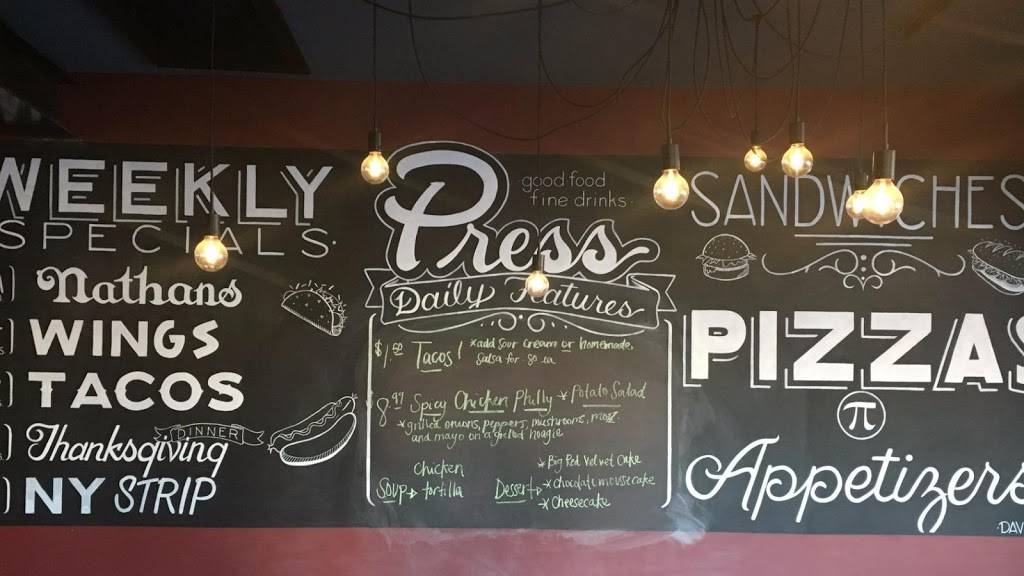 WEEKLY
SPECIALS
Nathans
WINGS
TACOS
Thanksgiving
DINNER
NY STRIP
Press
good food
fine drinks
Daily Features
$1.50 Tacos! *add sour cream or homemade
salsa for .50 ea.
8.97 Spicy Chicken Philly * Potato Salad
*grilled onions, peppers, mushrooms, mozz
and mayo on a grilled hoagie
Soup → Chicken
tortilla
Dessert → * Big Red Velvet Cake
* Chocolate mousse cake
* Cheesecake
SANDWICHES
PIZZAS
π
Appetizers
DAV